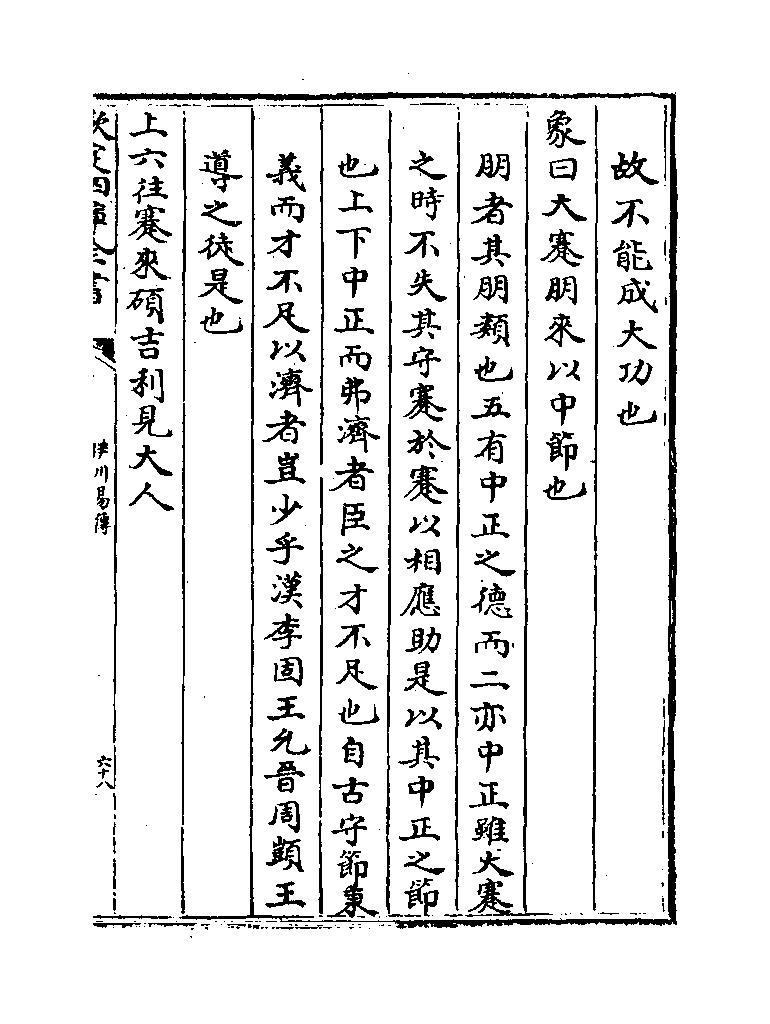 故不能成大功也
象曰大蹇朋來以中節也
朋者其朋類也五有中正之德而二亦中正雖大蹇
之時不失其守蹇於蹇以相應助是以其中正之節
也上下中正而弗濟者臣之才不足也自古守節秉
義而才不足以濟者豈少乎漢李固王允晉周顗王
導之徒是也
上六往蹇來碩吉利見大人
欽定四庫全書
伊川易傳
六十八